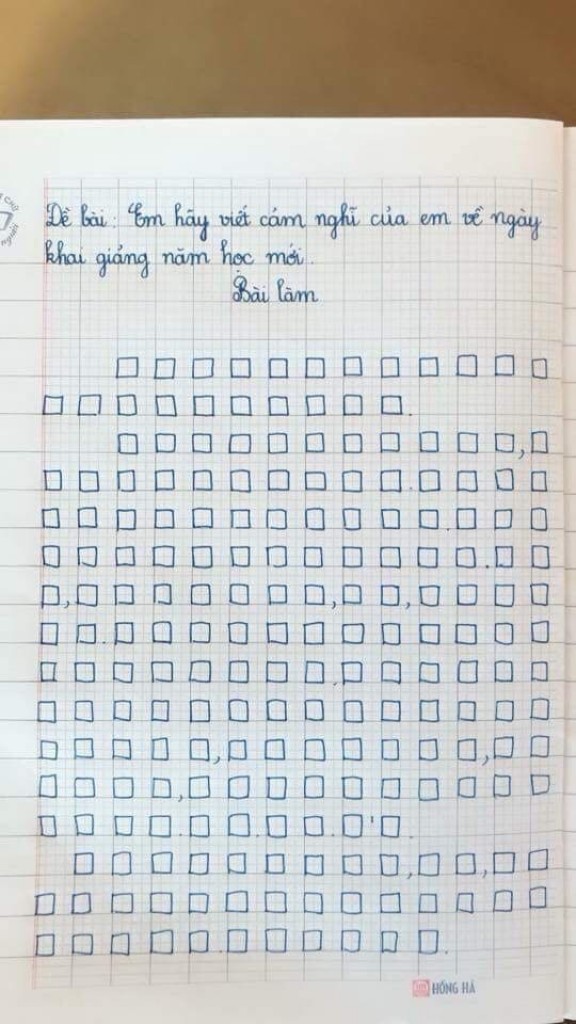 Đề bài: Em hãy viết cảm nghĩ của em về ngày
khai giảng năm học mới.
Bài làm
□ □ □ □ □ □ □ □ □ □ □ □
□ □ □ □ □ □ □ □ □ □.
□ □ □ □ □ □ □ □ □ □ □, □
□ □ □ □ □ □ □ □ □ □. □ □ □ □
□ □ □ □ □ □ □ □ □ □ □. □ □ □
□ □ □ □ □ □ □ □ □ □ □ □. □ □
□, □ □ □ □ □ □ □, □ □, □ □ □ □
□ □. □ □ □ □ □ □ □ □ □ □ □ □
□ □ □ □ □ □ □ □. □ □ □ □ □ □
□ □ □ □ □ □ □ □ □ □ □ □ □ □
□ □ □ □ □, □ □ □ □ □ □ □, □ □
□ □ □ □, □ □ □ □ □ □ □ □ □ □
□ □ □ □. □ □. □ □. □ ' □.
□ □ □ □ □ □ □ □ □, □ □, □ □
□ □ □ □ □ □ □ □ □ □ □ □ □ □
□ □ □ □ □. □ □ □ □ □ □.
HỒNG HÀ